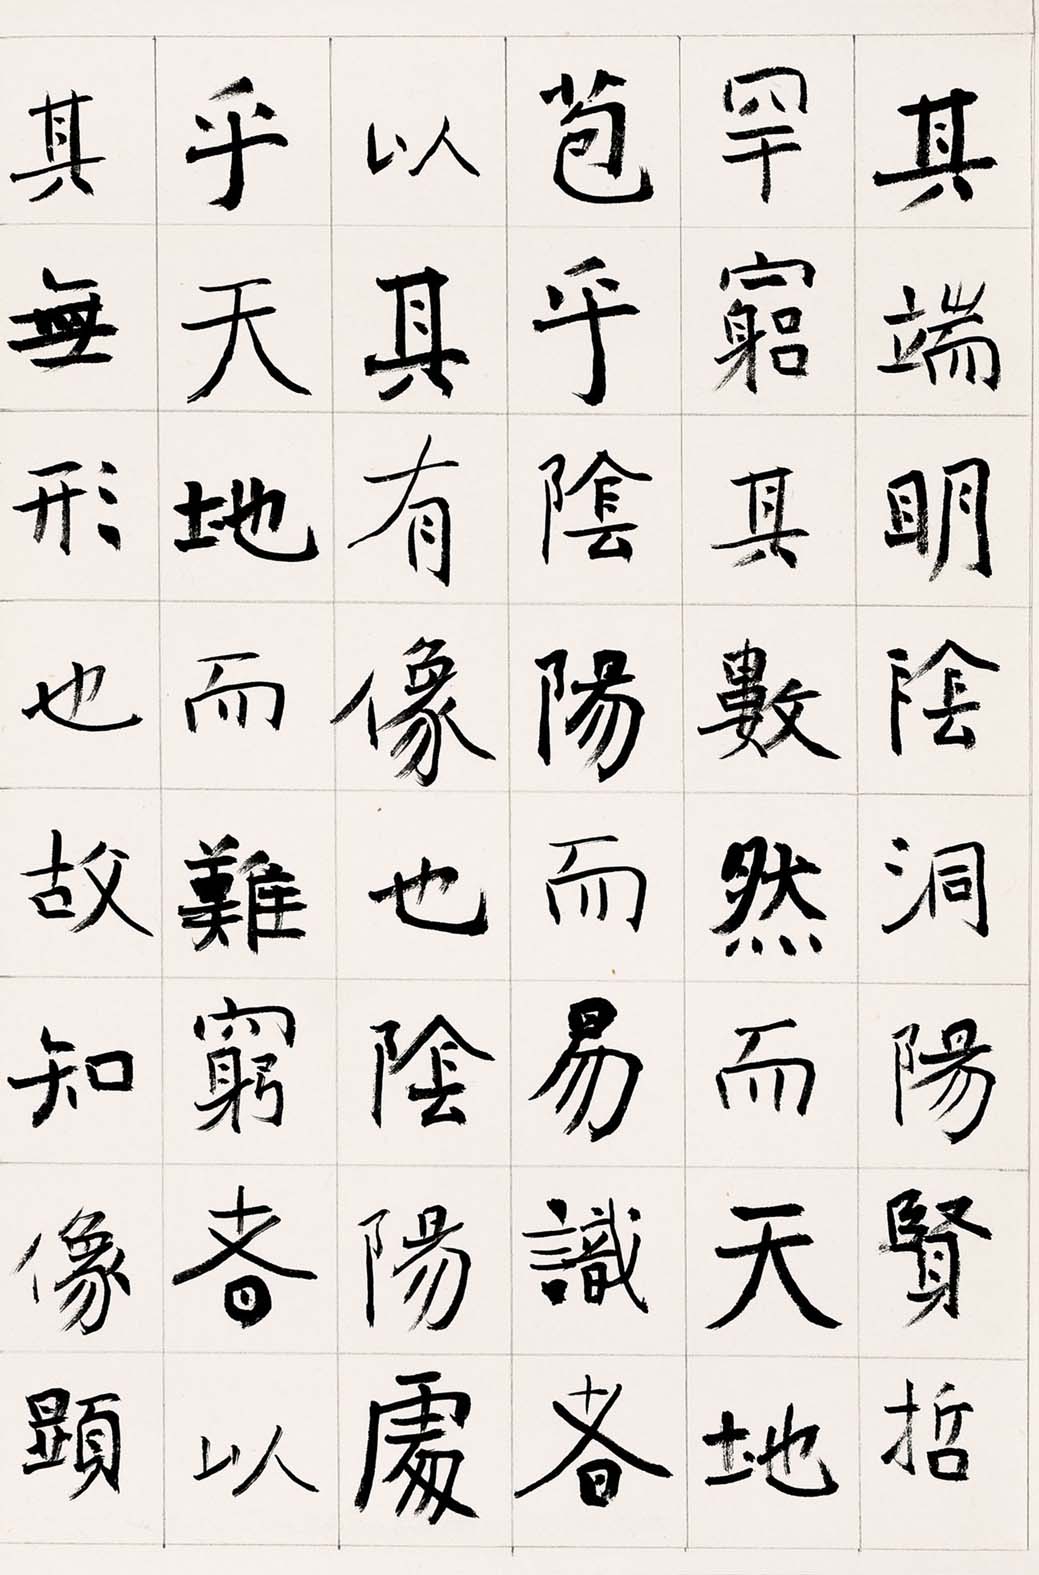 其端明陰洞陽賢哲
罕窮其數然而天地
苞乎陰陽而易識者
以其有像也陰陽處
乎天地而難窮者以
其無形也故知像顯